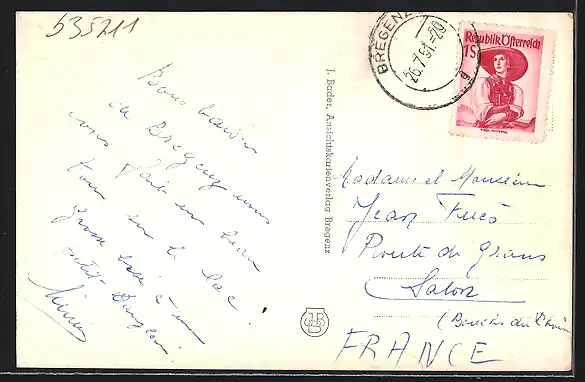 535211
Bons baisers
de Bregenz nous
avons fait un beau
tour sur le lac.
Grosse bise à mon
petit
BREGENZ
26.7.51.-20
Republik Österreich
1S
J. Bader, Ansichtskartenverlag Bregenz
Madame et Monsieur
Jean
Route de Grans
Salon
(Bouches du Rhône
FRANCE